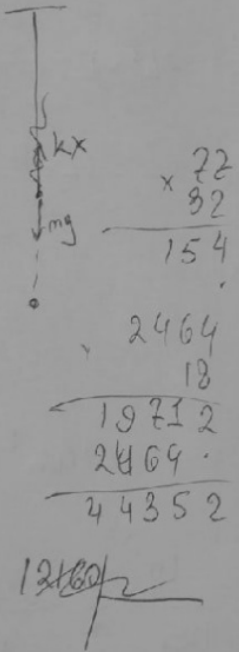 kx
mg
77
× 32
154
.
2464
18
19712
2464 .
44352